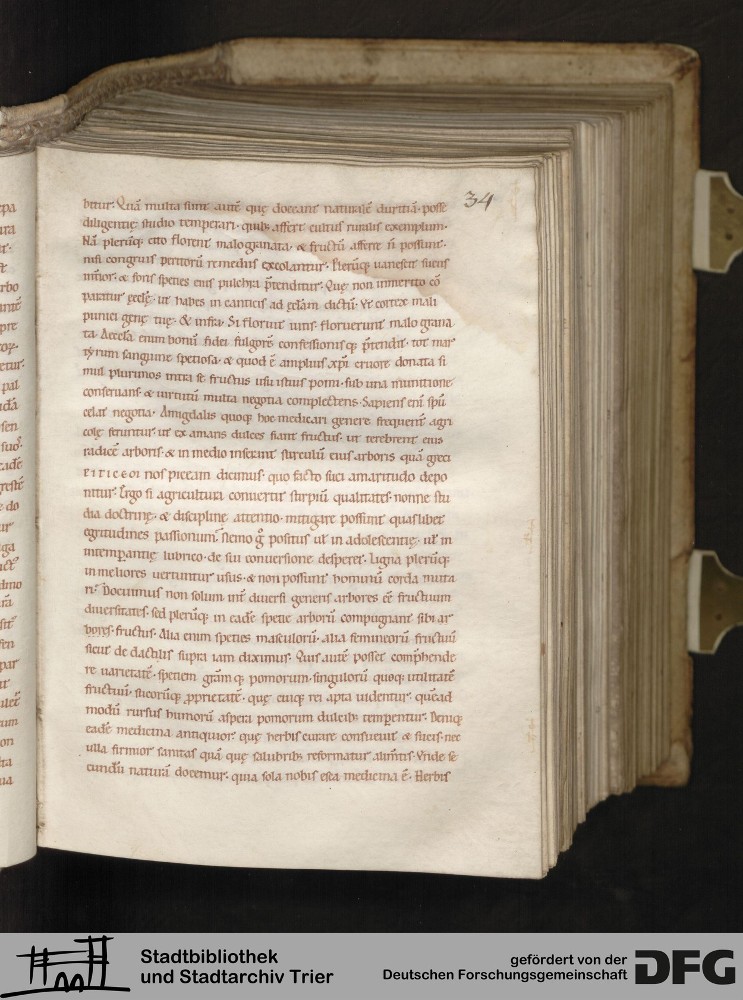 34
bitur. Quā multa sunt autē quę doceant naturalē duritiā posse
diligentię studio temperari. quib; affert cultus ruralis exemplum.
Nā plerūq; cito florent malogranata. & fructū afferre ñ possunt.
nisi congruis peritorū remediis excolantur. Plerūq; uanescit sucus
interior. & foris species eius pulchra p̄tenditur. Quę non inmerito cō
paratur ęcclę. ut habes in canticis ad ęcclam dictū. Vt cortex mali
punici genę tuę. & infra. Si floruit uitis. floruerunt malo grana
ta. Ęccla enim bonū fidei fulgorē confessionisq; p̄tendit. tot mar
tyrum sanguine speciosa. & quod ē amplius xp̄i cruore donata si
mul plurimos intra se fructus usu istius pomi. sub una munitione
conseruans. & uirtutū multa negotia complectens. Sapiens enī spū
celat negotia. Amigdalis quoq; hoc medicari genere frequent̄ agri
colę feruntur. ut ex amaris dulces fiant fructus. ut terebrent eius
radicē arboris. & in medio inserant surculū eius arboris quā greci
nos piceam dicimus. quo facto suci amaritudo depo
nitur. Ergo si agricultura conuertit stirpiū qualitates. nonne stu
dia doctrinę. & disciplinę attentio. mitigare possunt quaslibet
egritudines passionum. Nemo g̊ positus ut̄ in adolescentię. ut̄ in
intemperantię lubrico. de sui conuersione desperet. Ligna plerūq;
in meliores uertuntur usus. & non possunt hominū corda muta
ri? Docuimus non solum int̄ diuersi generis arbores eē fructuum
diuersitates. sed plerūq; in eadē specie arborū compugnant sibi ar
bores. fructus. Alia enim species masculorū. alia femineorū fructuū
sicut de dactilis supra iam diximus. Quis autē posset comp̄hende
re uarietatē. speciem gr̄amq; pomorum. singulorū quoq; utilitatē
fructuū. sucorūq; ꝓprietatē. quę cuiq; rei apta uidentur. quēad
modū rursus humorū aspera pomorum dulcib; temperentur. Deniq;
eadē medicina antiquior. quę herbis curare consueuit & sucis. nec
ulla firmior sanitas quā quę salubrib; reformatur alimtis. Vnde se
cundū naturā docemur. quia sola nobis esca medicina ē. Herbis
Stadtbibliothek
und Stadtarchiv Trier
gefördert von der
Deutschen Forschungsgemeinschaft
DFG